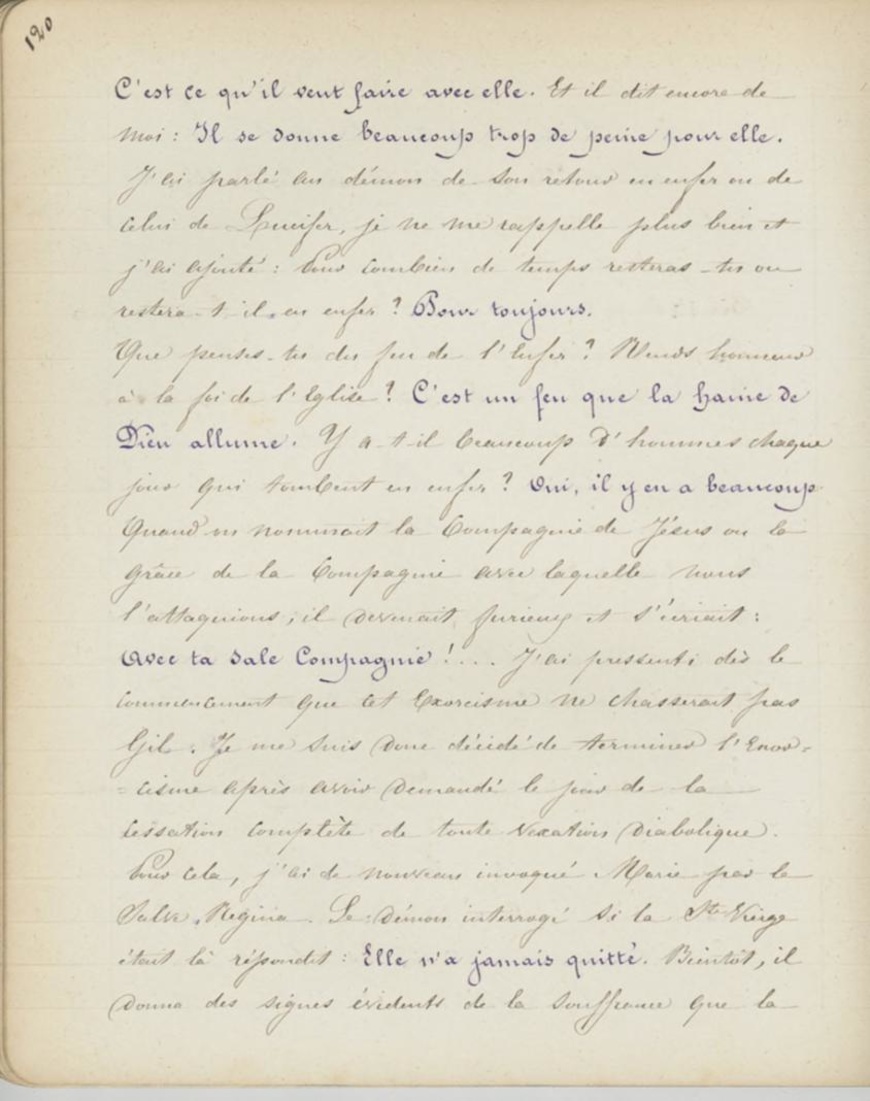 120
C'est ce qu'il veut faire avec elle. Et il dit encore de
moi : Il se donne beaucoup trop de peine pour elle.
J'ai parlé au démon de son retour en enfer ou de
celui de Lucifer, je ne me rappelle plus bien et
j'ai ajouté : Pour combien de temps resteras-tu ou
restera-t-il en enfer ? Pour toujours.
Que penses-tu du feu de l'Enfer ? Rends honneur
à la foi de l'Eglise ? C'est un feu que la haine de
Dieu allume. Y a-t-il beaucoup d'hommes chaque
jour qui tombent en enfer ? Oui, il y en a beaucoup
Quand on nommait la Compagnie de Jésus ou la
grâce de la Compagnie avec laquelle nous
l'attaquions, il devenait furieux et s'écriait :
Avec ta sale Compagnie !... J'ai pressenti dès le
commencement que cet Exorcisme ne chasserait pas
Gil. Je me suis donc décidé de terminer l'Exor=
=cisme après avoir demandé le jour de la
cessation complète de toute vexation diabolique.
Pour cela, j'ai de nouveau invoqué Marie par le
Salve Regina. Le démon interrogé si la Ste Vierge
était là répondit : Elle n'a jamais quitté. Bientôt, il
donna des signes évidents de la souffrance que la